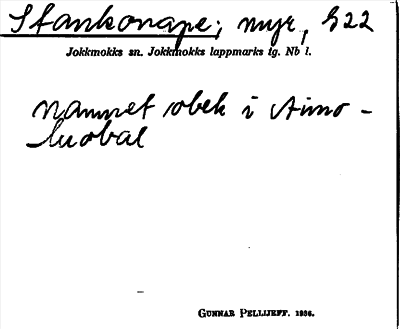 Stankonape; myr, 522
Jokkmokks sn. Jokkmokks lappmarks tg. Nb l.
Namnet obek i Aimo-
luobal
GUNNAR PELLIJEFF. 1936.